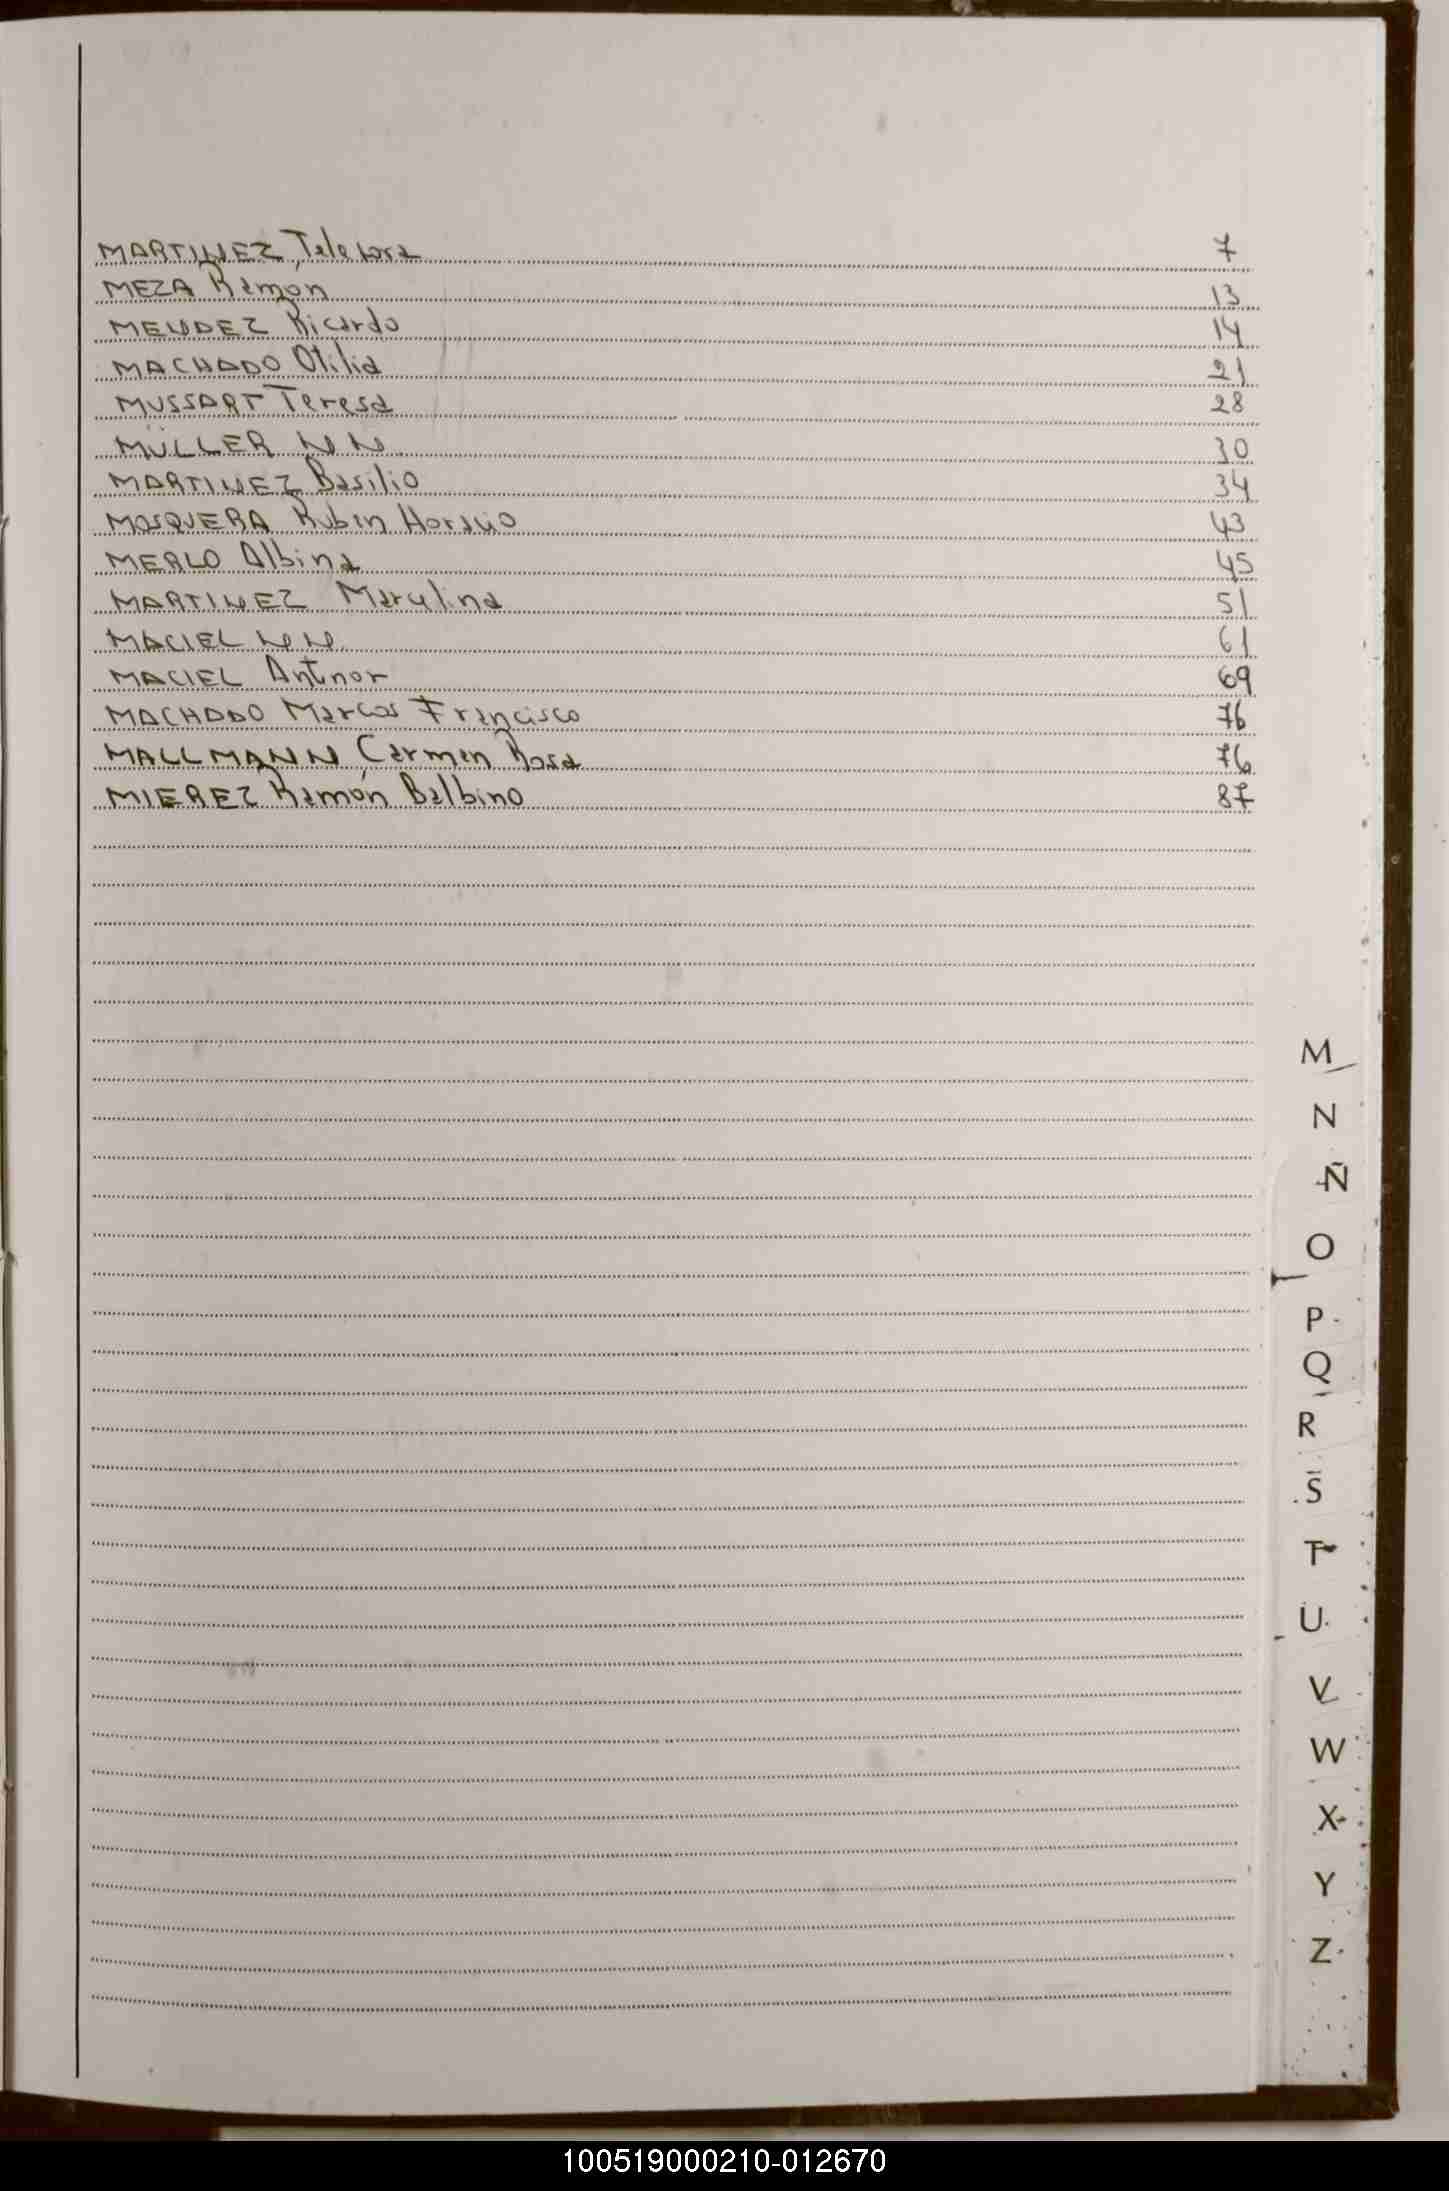 MARTINEZ, Telesora 7
MEZA Ramón 13
MENDEZ Ricardo 14
MACHADO Otilia 21
MUSSART Teresa 28
MÜLLER N N. 30
MARTINEZ Basilio 34
MOSQUERA Ruben Horacio 43
MERLO Albina 45
MARTINEZ Marcelina 51
MACIEL N N. 61
MACIEL Antnor 69
MACHADO Marcos Francisco 76
MALLMANN, Carmen Rosa 76
MIEREZ Ramón Balbino 87
M
N
Ñ
O
P
Q
R
S
T
U
V
W
X
Y
Z
100519000210-012670